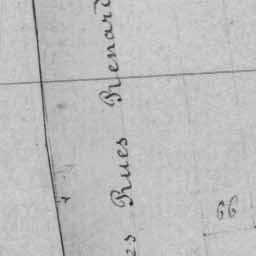 es Rues Renard
66